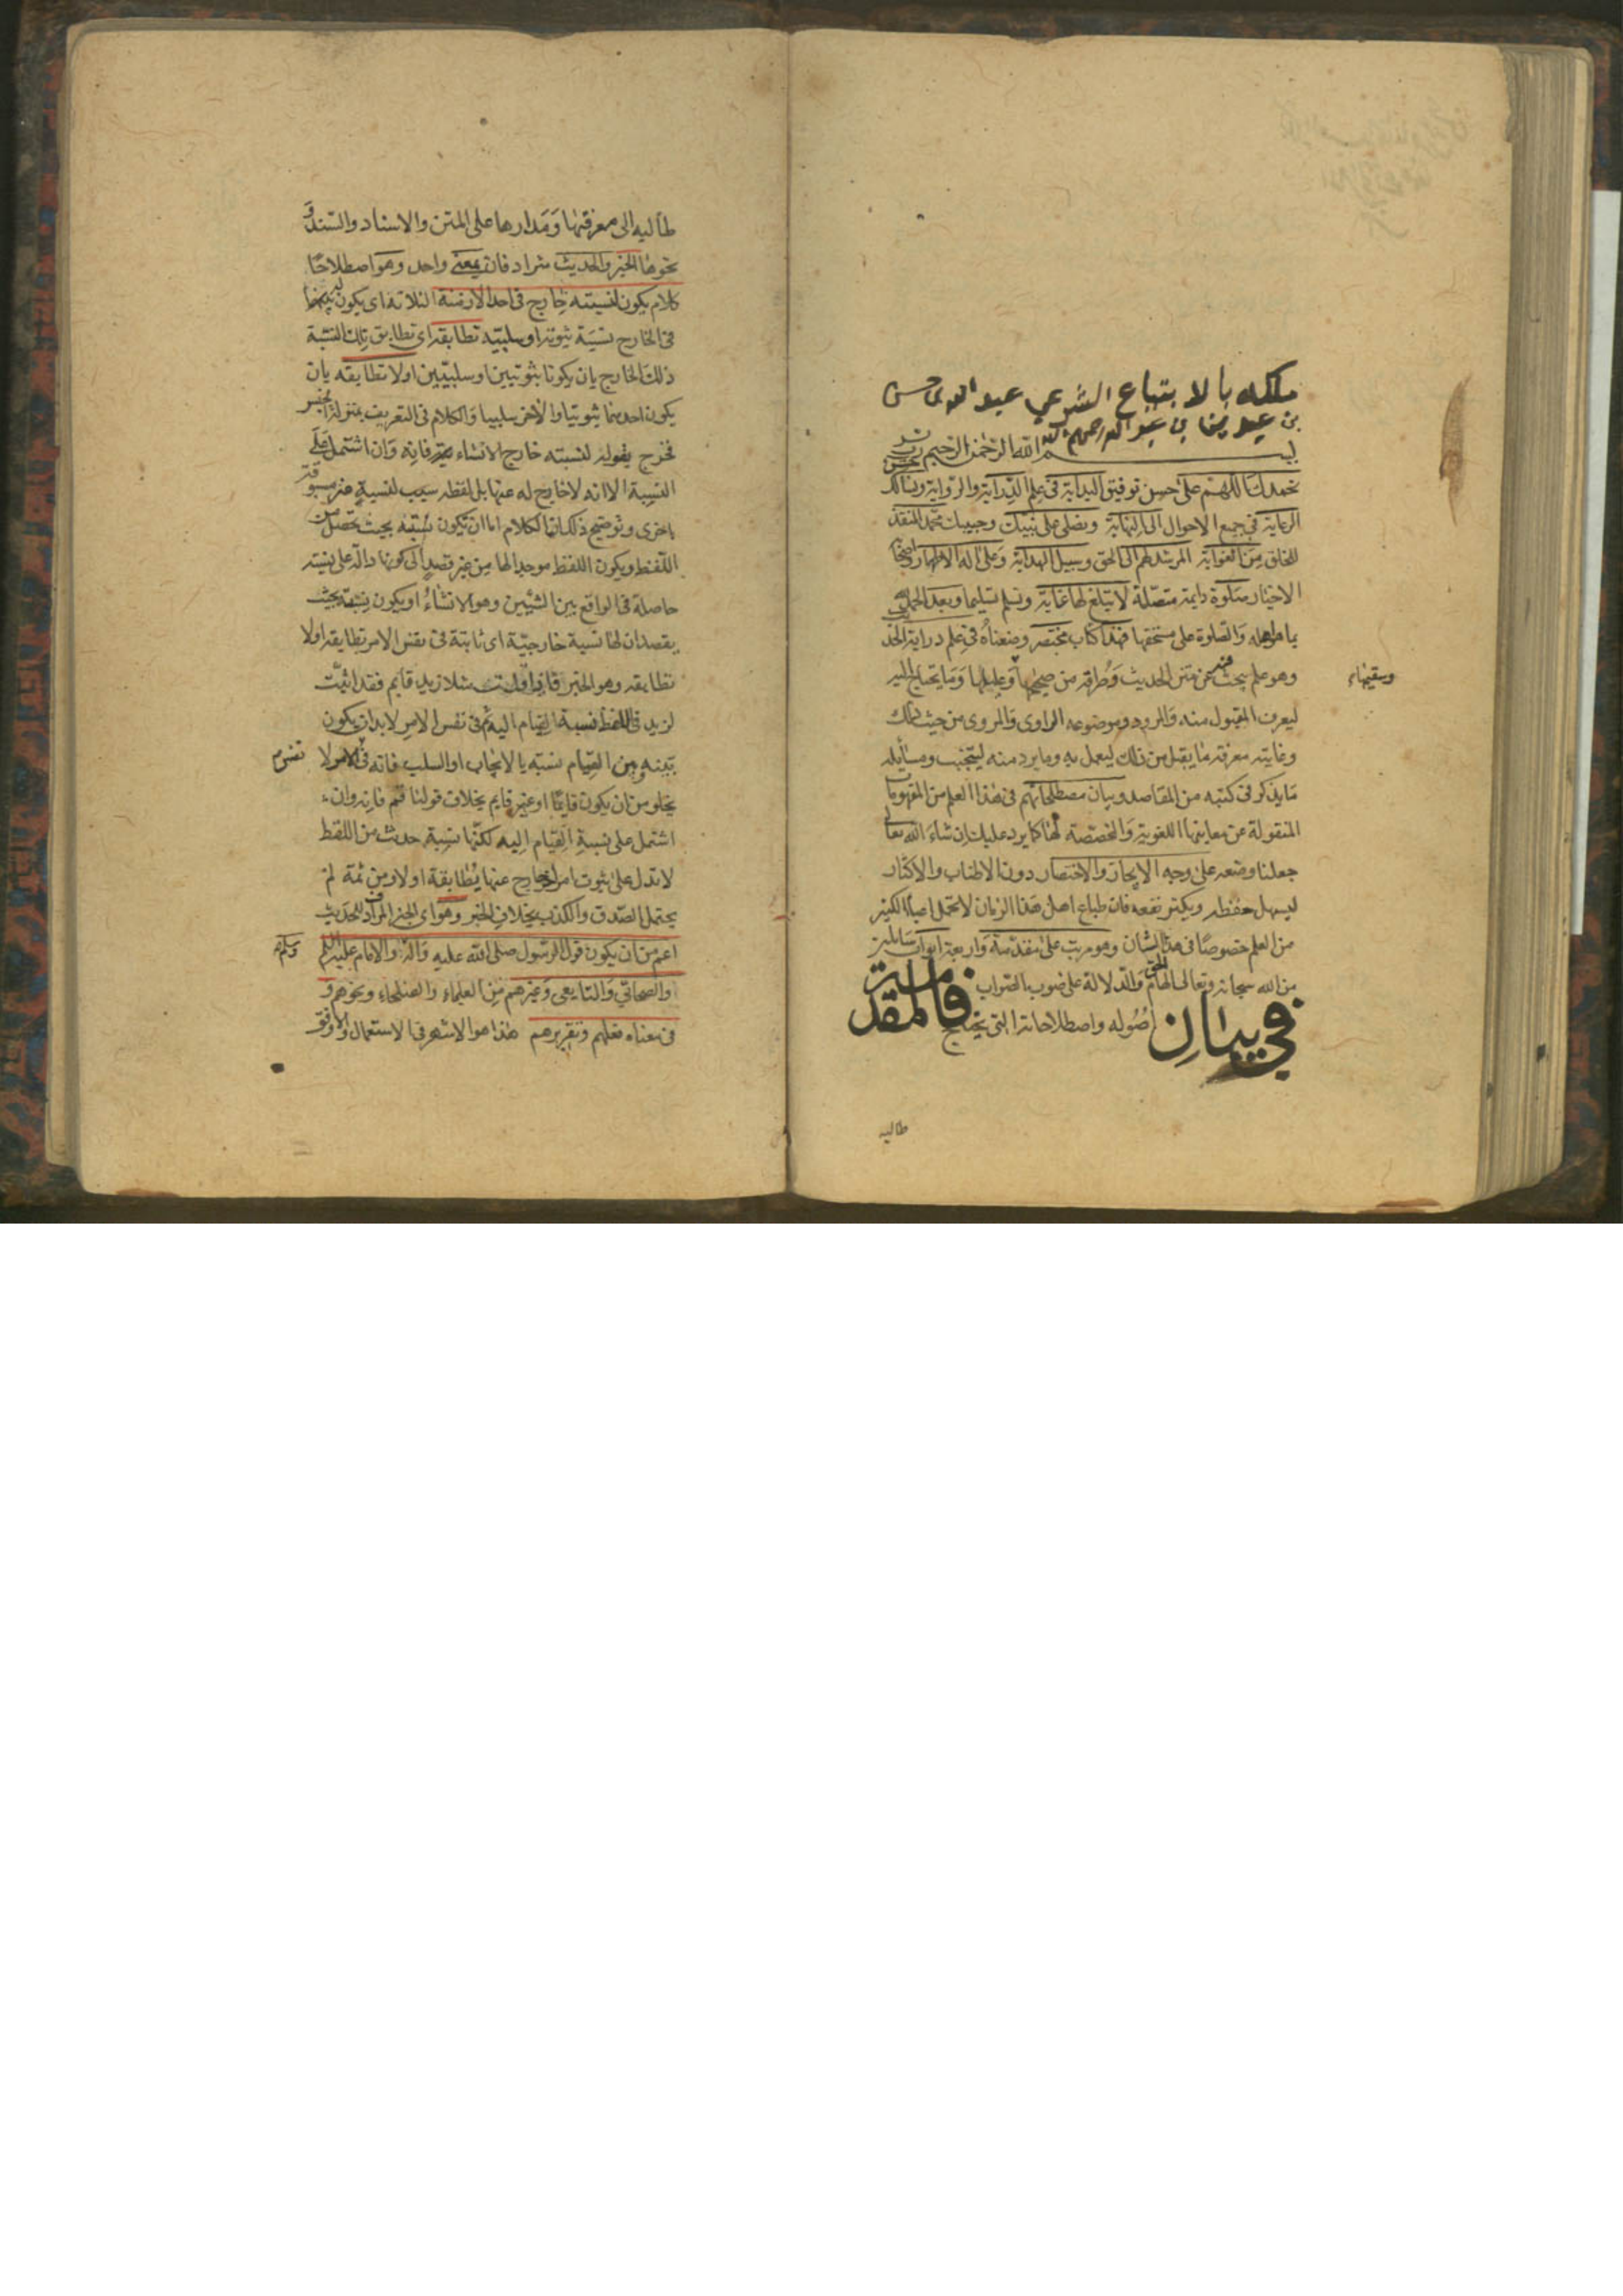 ملكه بالابتياع الشرعي عبد الله بن حسن
بن
بسم الله الرحمن الرحيم
نحمدك اللهم على حسن توفيق البداية في علم الدراية والرواية ونسالك
الرعاية في جميع الاحوال الى النهاية ونصلي على نبيك وحبيبك محمد المنقذ
للخلق من الغواية المرشد لهم الى الحق وسبيل الهداية وعلى اله الاطهار واصحابه
الاخيار صلوة دايمة متصلة لا تبلغ لها غاية ونسلم تسليما وبعد الحمد لله
بما هو اهله والصلوة على مستحقها فهذا كتاب مختصر وضعناه في علم دراية الحد
وهو علم يبحث فيه عن متن الحديث وطرقه من صحيحها وعليلها وما يحتاج اليه
وسقيمها
ليعرف المقبول منه والمردود وموضوعه الراوي والمروي من حيث ذلك
وغايته معرفة ما يقبل من ذلك ليعمل به وما يرد منه ليتجنب ومسايله
ما يذكر في كتبه من المقاصد وبيان مصطلحاتهم في هذا العلم من المفهومات
المنقولة عن معانيها اللغوية والمخصصة لها كما يرد عليك ان شاء الله تعالى
جعلنا وضعه على وجه الايجاز والاختصار دون الاطناب والاكثار
ليسهل حفظه ويكثر نفعه فان طباع اهل هذا الزمان لا تحمل اعباء الكثير
من العلم خصوصا في هذا الشان وهو مرتب على مقدمة واربعة ابواب سايلين
من الله سبحانه وتعالى الهام الحق والدلالة على صوب الصواب فالمقدمة
في بيان اصوله واصطلاحاته التي يحتاج
طالبه
طالبه الى معرفتها ومدارها على المتن والاسناد والسند و
نحوها الخبر والحديث مترادفان بمعنى واحد وهو اصطلاحا
كلام يكون لنسبته خارج في احد الازمنة الثلاثة اي يكون
في الخارج نسبة ثبوتية او سلبية تطابقه اي تطابق تلك النسبة
ذلك الخارج بان يكونا ثبوتيين او سلبيين او لا تطابقه بان
يكون احدهما ثبوتيا والاخر سلبيا والكلام في التعريف بمنزلة الجنس
فخرج بقوله لنسبته خارج الانشاء فانه وان اشتمل على
النسبة الا انه لا خارج له عنها بل لفظه سبب لنسبة غير مسبوقة
باخرى وتوضيح ذلك ان الكلام اما ان تكون نسبته بحيث تحصل من
اللفظ ويكون اللفظ موجدا لها من غير قصد الى كونها دالة على نسبة
حاصلة في الواقع بين الشيئين وهو الانشاء او يكون نسبته بحيث
يقصد ان لها نسبة خارجية اي ثابتة في نفس الامر تطابقه او لا
تطابقه وهو الخبر فاذا قلت مثلا زيد قايم فقد اثبت
لزيد في اللفظ نسبة القيام اليه ثم في نفس الامر لا بد ان يكون
بينه وبين القيام نسبة بالايجاب او السلب فانه في الامر لا
نفس
يخلو من ان يكون قايما او غير قايم بخلاف قولنا قم فانه وان
اشتمل على نسبة القيام اليه لكنها نسبة حدثت من اللفظ
لا تدل على ثبوت امر خارج عنها يطابقه او لا ومن ثمة لم
يحتمل الصدق والكذب بخلاف الخبر وهو اي الخبر المرادف للحديث
اعم من ان يكون قول الرسول صلى الله عليه واله والامام عليه السلم
وسلم
والصحابي والتابعي وغيرهم من العلماء والصلحاء ونحوهم و
في معناه فعلهم وتقريرهم هذا هو الاشهر في الاستعمال والاوفق